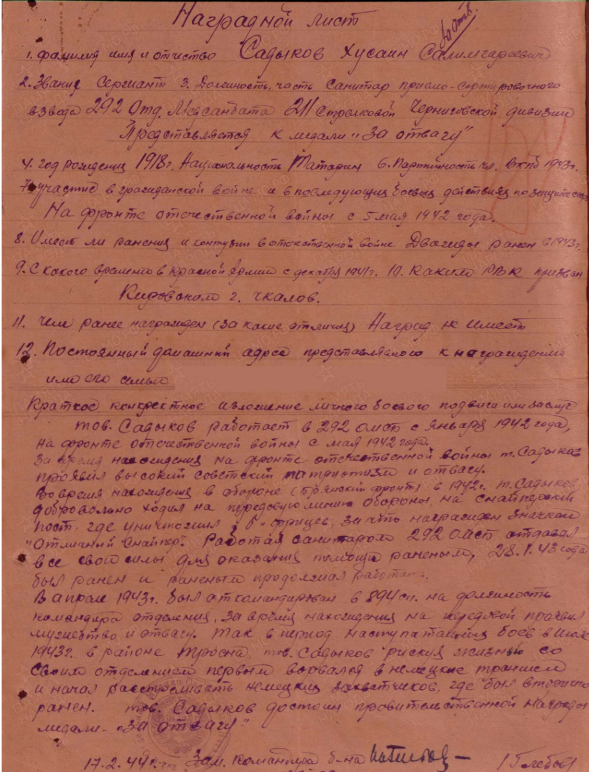 Наградной лист
1. Фамилия имя и отчество Садыков Хусаин Салимгареевич
2. Звание Сержант 3. Должность, часть Санитар приемо-сортировочного
взвода 292 Отд. Медсанбата 211 Стрелковой Черниговской дивизии
Представляется к медали "За отвагу"
4. год рождения 1918г. Национальность Татарин 6. Партийность чл. ВКПб 1943г.
7. участие в гражданской войне и в последующих боевых действиях по защите
На фронте отечественной войны с 5 мая 1942 года.
8. Имеет ли ранения и контузии в отечественной войне Дважды ранен в 1943г.
9. С какого времени в Красной Армии с декабря 1941г. 10. Каким РВК призван
Кировским г. Чкалов.
11. Чем ранее награжден (за какие отличия) Наград не имеет
12. Постоянный домашний адрес представляемого к награждению
и его семьи
Краткое конкретное изложение личного боевого подвига или заслуг
тов. Садыков работает в 292 омсб с января 1942 года,
на фронте отечественной войны с мая 1942 года.
За время нахождения на фронте отечественной войны т. Садыков
проявил высокий советский патриотизм и отвагу.
Во время нахождения в обороне (Брянский фронт) в 1942г. т. Садыков
добровольно ходил на передовую линию обороны, на снайперский
пост, где уничтожил фрицев, за что награжден значком
"Отличный снайпер". Работая санитаром 292 омсб отдавал
все свои силы для оказания помощи раненым, 28.1.43 года
был ранен и раненым продолжал работать.
В апреле 1943г. был откомандирован в 894 сп. на должность
командира отделения, за время нахождения на передовой проявил
мужество и отвагу. Так в период наступательных боев в июле
1943г. в районе Тросна, тов. Садыков рискуя жизнью со
своим отделением первым ворвался в немецкие траншеи
и начал расстреливать немецких захватчиков, где был вторично
ранен. тов. Садыков достоин правительственной награды
медали - "За отвагу"
17.2.44г. Зам. командира б-на